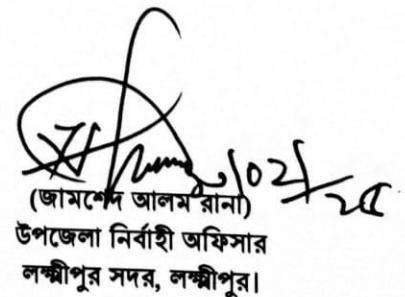 (জামশেদ আলম রানা)
উপজেলা নির্বাহী অফিসার
লক্ষ্মীপুর সদর, লক্ষ্মীপুর।